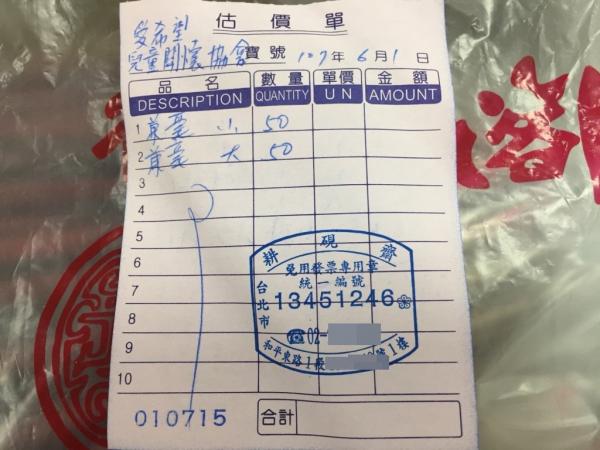 估價單
愛希望
兒童關懷協會 寶號 107年6月1日
品名 數量 單價 金額
DESCRIPTION QUANTITY U N AMOUNT
1 兼毫 小 50
2 兼毫 大 50
3
4
5
6
7
8
9
10
耕硯齋
免用發票專用章
統一編號
台北市 13451246
☎02-
和平東路1段 號1樓
010715 合計